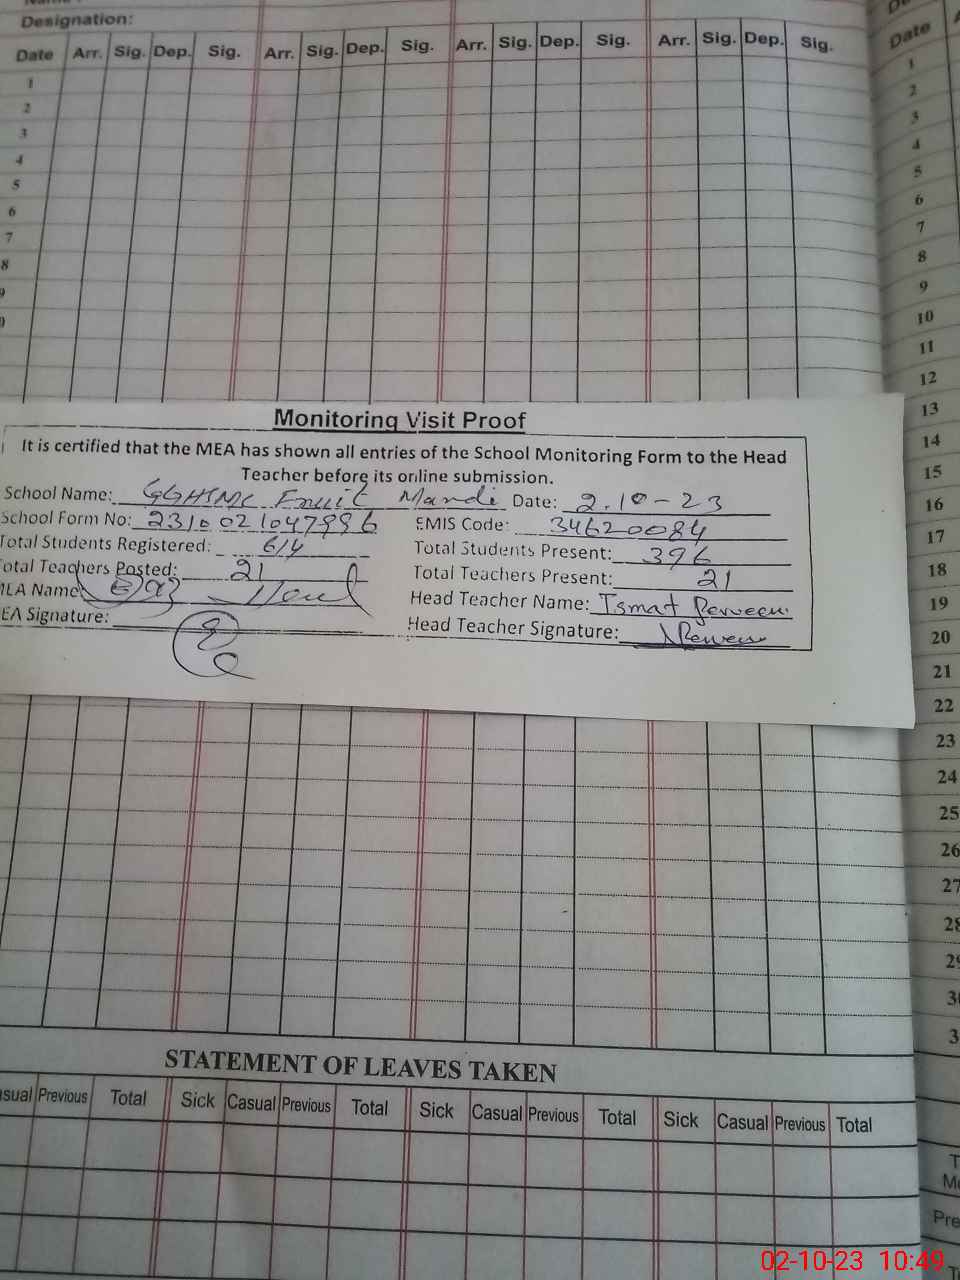 Designation:
Date Arr. Sig. Dep. Sig. Arr. Sig. Dep. Sig. Arr. Sig. Dep. Sig. Arr. Sig. Dep. Sig.
Date
1
2
3
4
5
6
7
8
9
1
2
3
4
5
6
7
8
9
10
11
12
13
14
15
16
17
18
19
20
21
22
23
24
25
26
27
Monitoring Visit Proof
It is certified that the MEA has shown all entries of the School Monitoring Form to the Head
Teacher before its online submission.
School Name: Fruit Mandi Date: 2.10-23
School Form No: 2310021047996 EMIS Code: 34620084
Total Students Registered: 614 Total Students Present: 396
Total Teachers Posted: 21 Total Teachers Present: 21
Name: Head Teacher Name: Ismat Perveen
EA Signature: Head Teacher Signature: Perveen
STATEMENT OF LEAVES TAKEN
Previous Total Sick Casual Previous Total Sick Casual Previous Total Sick Casual Previous Total
Pre
02-10-23 10:49